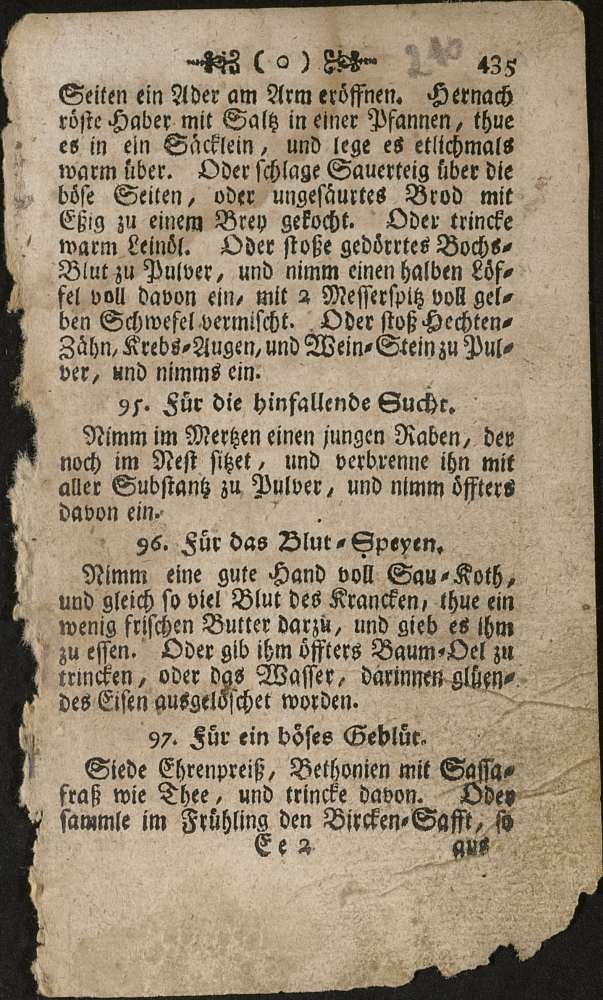 ( o ) 240 435
Seiten ein Ader am Arm eröffnen. Hernach
röste Haber mit Saltz in einer Pfannen, thue
es in ein Säcklein, und lege es etlichmals
warm über. Oder schlage Sauerteig über die
böse Seiten, oder ungesäurtes Brod mit
Eßig zu einem Brey gekocht. Oder trincke
warm Leinöl. Oder stoße gedörrtes Bochs-
Blut zu Pulver, und nimm einen halben Löf-
fel voll davon ein, mit 2 Messerspitz voll gel-
ben Schwefel vermischt. Oder stoß Hechten-
Zähn, Krebs-Augen, und Wein-Stein zu Pul-
ver, und nimms ein.
95. Für die hinfallende Sucht.
Nimm im Mertzen einen jungen Raben, der
noch im Nest sitzet, und verbrenne ihn mit
aller Substantz zu Pulver, und nimm öffters
davon ein.
96. Für das Blut-Speyen.
Nimm eine gute Hand voll Sau-Koth,
und gleich so viel Blut des Krancken, thue ein
wenig frischen Butter darzu, und gieb es ihm
zu essen. Oder gib ihm öffters Baum-Oel zu
trincken, oder das Wasser, darinnen glüen-
des Eisen ausgelöschet worden.
97. Für ein böses Geblüt.
Siede Ehrenpreiß, Bethonien mit Sassa-
fraß wie Thee, und trincke davon. Oder
sammle im Frühling den Bircken-Safft, so
E e 2 aus